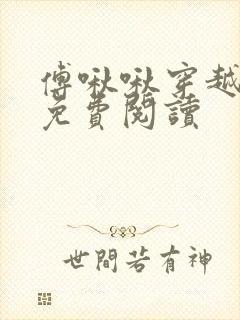 傅啾啾穿越
免費閱讀
世間若有神